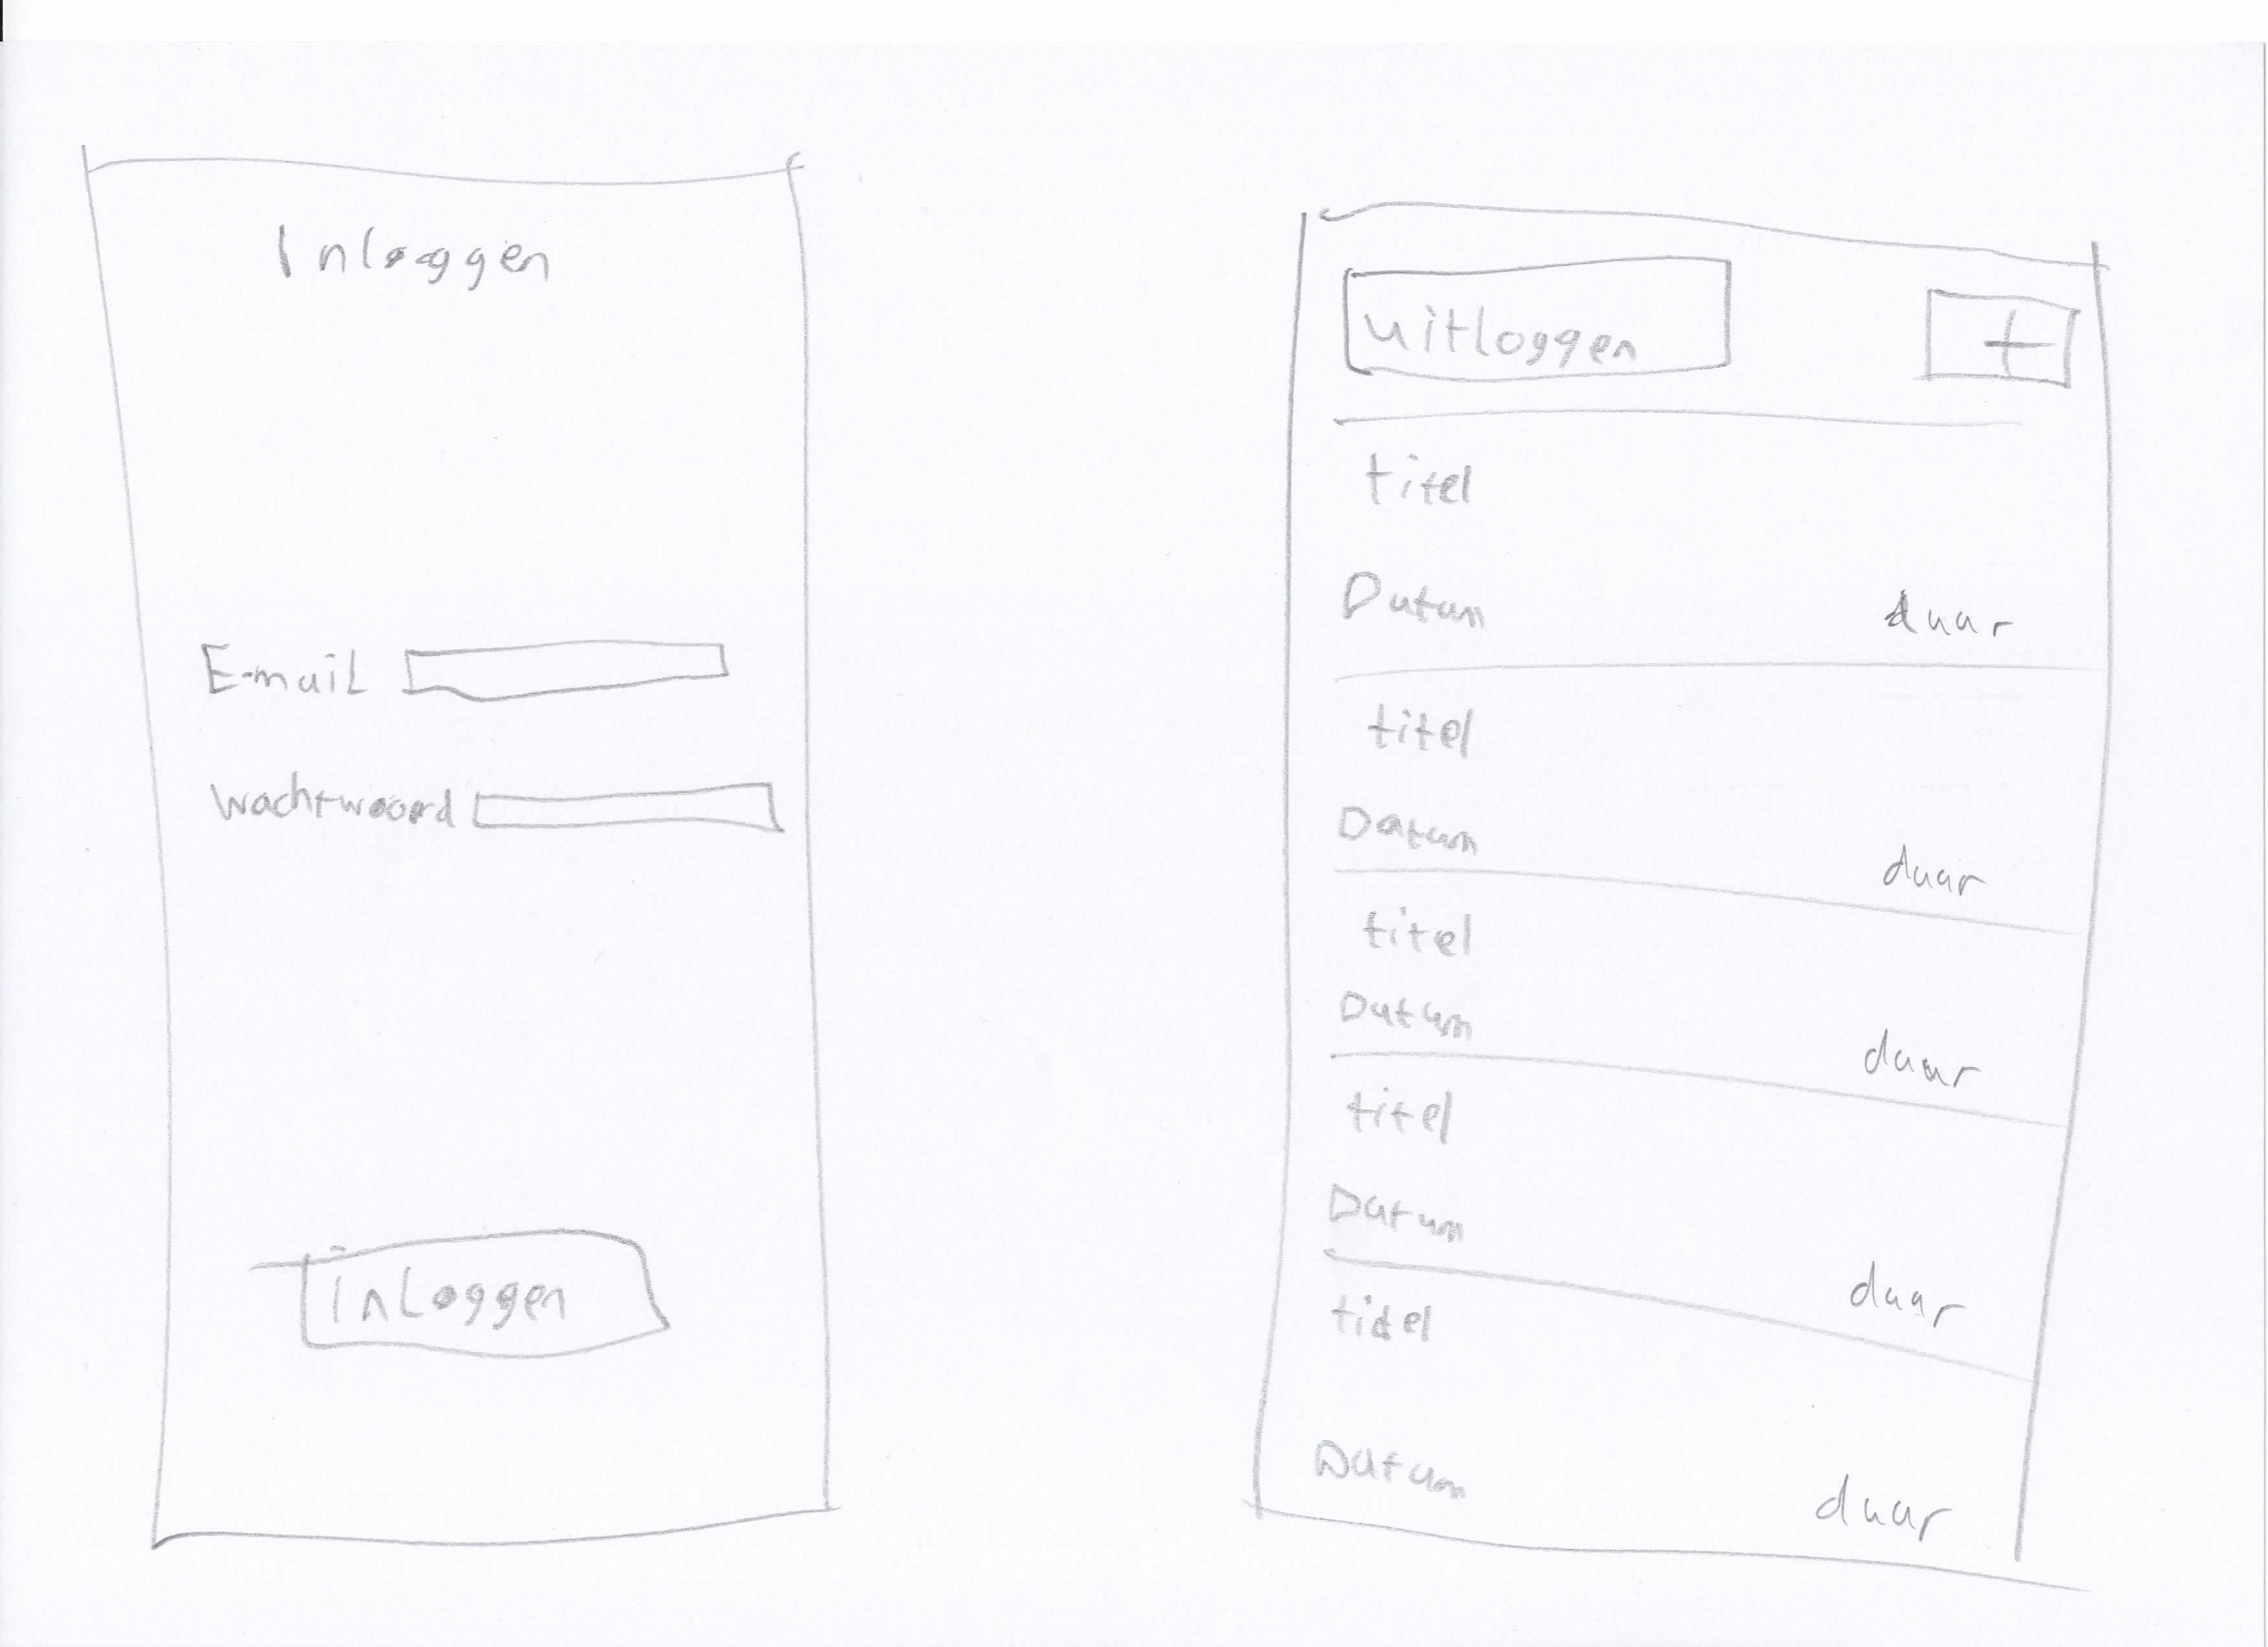 Inloggen
E-mail
Wachtwoord
inloggen
uitloggen +
titel
Datum duur
titel
Datum
duur
titel
Datum
duur
titel
Datum
duur
titel
Datum
duur